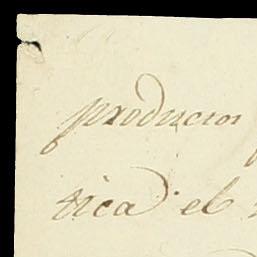 producios
tica el